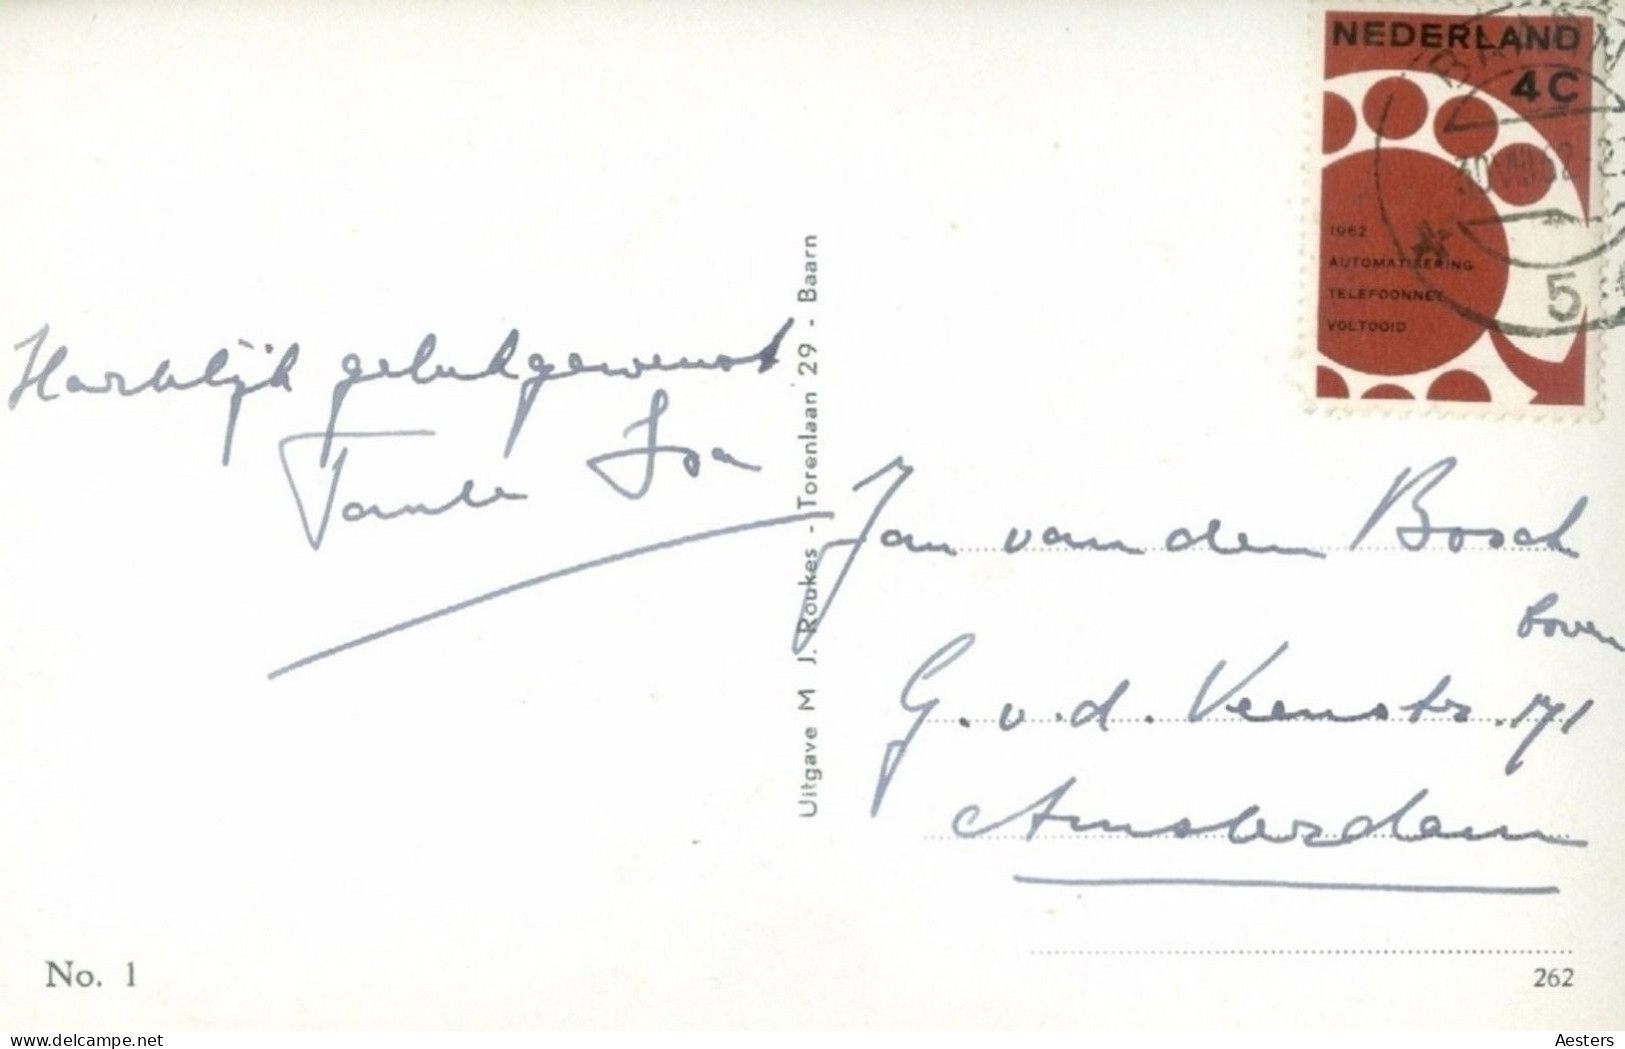 NEDERLAND
4 C
BAARN
30.VIII.62
5
1962
AUTOMATISERING
TELEFOONNET
VOLTOOID
Hartelijk gelukgewenst
Tante
Uitgave M. J. Roukes - Torenlaan 29 - Baarn
Jan van den Bosch
boven
G. v. d. Veenstr. 171
Amsterdam
No. 1
262
delcampe.net
Aesters